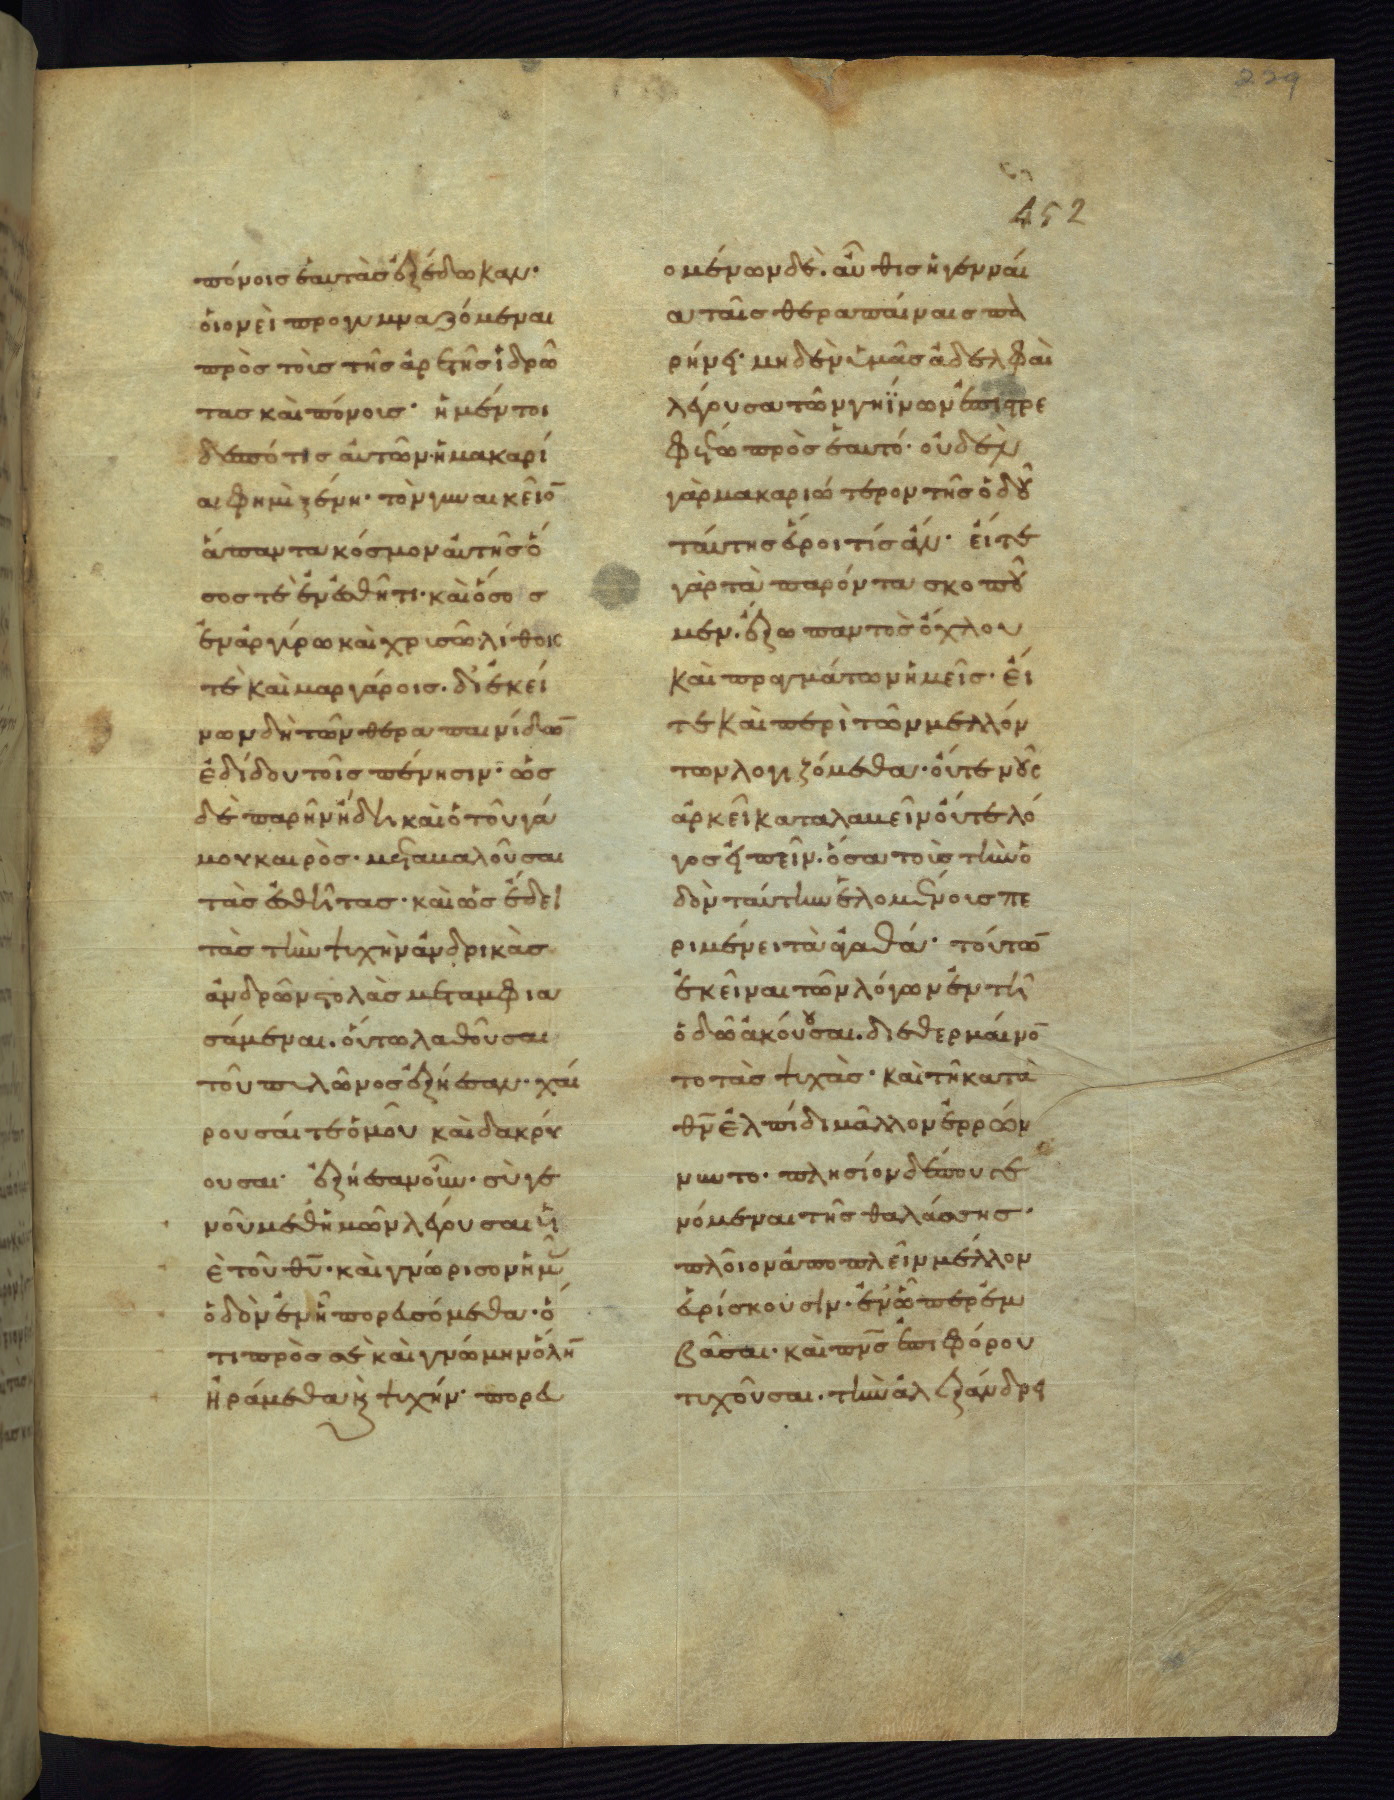 229
452
πόνοις ἑαυτὰς ἐξέδωκαν·
οἱονεὶ προγυμναζόμεναι
πρὸς τοὺς τῆς ἀρετῆς ἱδρῶ
τας καὶ πόνους· ἡ μέντοι
δεσπότις αὐτῶν ἡ μακαρί
α φημὶ ξένη· τὸν γυναικεῖο̅
ἅπαντα κόσμον αὐτῆς ὅ
σος τὲ ἐν ἐσθῆτι· καὶ ὅσος
ἐν ἀργύρω καὶ χρυσῶ· λίθοις
τὲ καὶ μαργάροις· δι' ἐκεί
νων δὴ τῶν θεραπαινίδω̅
ἐδίδου τοῖς πένησιν· ὡς
δὲ παρῆν ἤδη καὶ ὁ τοῦ γά
μου καιρὸς· μεταμαλοῦσαι
τὰς ἐσθῆτας· καὶ ὡς ἔδει
τὰς τὴν ψυχὴν ἀνδρικὰς
ἀνδρῶν στολὰς μεταμφια
σάμεναι· οὕτω λαθοῦσαι
τοῦ πυλῶνος ἐξήεσαν· χαί
ρουσαί τε ὁμοῦ καὶ δακρύ
ουσαι· ἐξήεσαν οὖν· σὺ γε
νοῦ μεθ' ἡμῶν λέγουσαι υἱ
ὲ τοῦ θυ̅· καὶ γνώρισον ἡμῖν
ὁδὸν ἐν ἧ πορευσόμεθα· ὅ
τι πρὸς σὲ καὶ γνώμην ὅλη̅
ἠράμεθα κ ψυχήν· πορευ
ομένων δὲ· αὖθις ἡ γενναί
α ταῖς θεραπαίναις πα
ρήνει· μηδὲν ὑμᾶς ἀδελφαὶ
λέγουσα τῶν γηΐνων ἐπιστρε
φέτω πρὸς ἑαυτό· οὐδὲν
γὰρ μακαριώτερον τῆς ὁδοῦ
ταύτης εὕροι τίς ἄν· εἴτε
γὰρ τὰ παρόντα σκοποῦ
μεν· ἔξω παντὸς ὄχλου
καὶ πραγμάτων ἡμεῖς· εἴ
τε καὶ περὶ τῶν μελλόν
των λογιζόμεθα· οὔτε νοῦς
ἀρκεῖ καταλαβεῖν οὔτε λό
γος εἰπεῖν· ὅσα τοῖς τὴν ὁ
δὸν ταύτην ἑλομένοις πε
ριμένει τὰ ἀγαθά· τούτω̅
ἐκεῖναι τῶν λόγων ἐν τῆ
ὁδῶ ἀκούουσαι· διεθερμαίνο̅
το τὰς ψυχὰς· καὶ τῆ κατὰ
θν̅ ἐλπίδι μᾶλλον ἐρρών
νυντο· πλησίον δέπου γε
νόμεναι τῆς θαλάσσης·
πλοῖον ἀποπλεῖν μέλλον
εὑρίσκουσιν· ἐν ὧπερ ἐμ
βᾶσαι· καὶ πν̅ς ἐπιφόρου
τυχοῦσαι· τὴν ἀλεξάνδρει